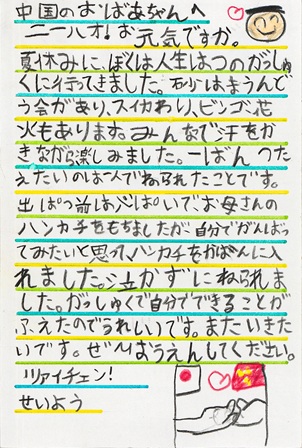 中国のおばあちゃんへ
ニーハオ!お元気ですか。
夏休みに、ぼくは人生はつのがっしゅ
くに行ってきました。石少はまうんど
う会があり、スイカわり、ビンゴ、花
火もあります。みんなで汗をか
きながら楽しみました。一ばんつた
えたいのは一人でねられたことです。
出ぱつ前は心ぱいでお母さんの
ハンカチをもちましたが自分でがんばっ
てみたいと思って、ハンカチをかばんに入
れました。泣かずにねられま
した。がっしゅくで自分でできることが
ふえたのでうれしいです。またいきた
いです。ぜひおうえんしてください。
ツァイチェン!
せいよう